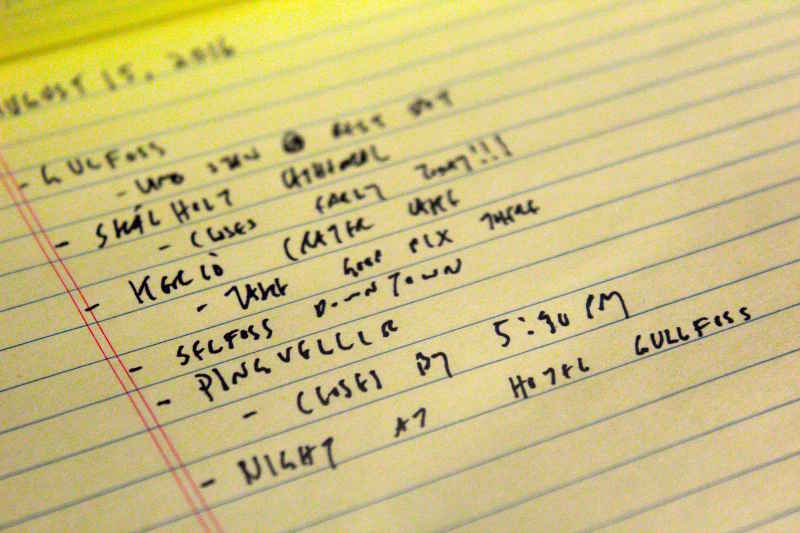 AUGUST 15, 2016
- GULFOSS
- @ REST
- SKÁLHOLT CATHEDRAL
- CLOSES EARLY TODAY!!!
- KERIÒ CRATER LAKE
- TAKE GOOD PIX THERE
- SELFOSS DOWNTOWN
- PINGVELLIR
- CLOSES BY 5:30 PM
- NIGHT AT HOTEL GULLFOSS